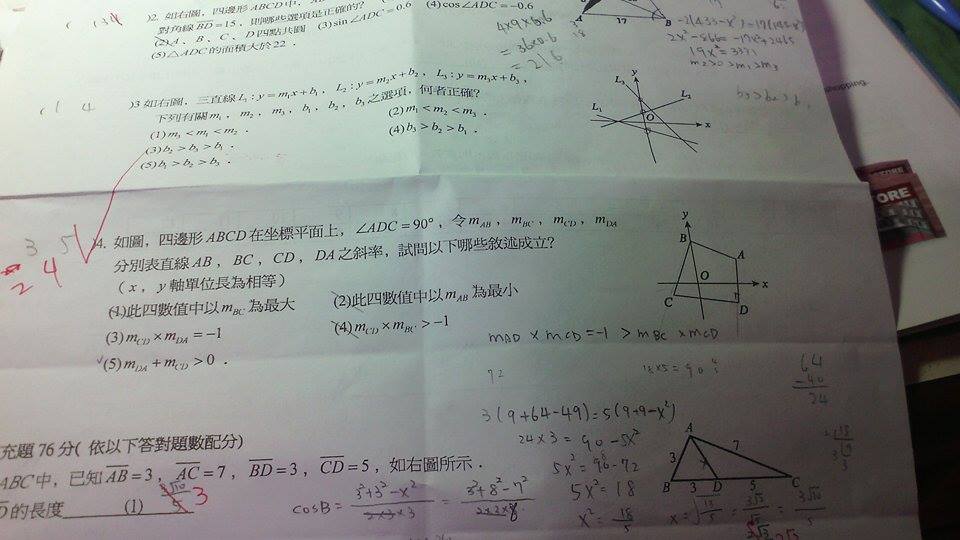 ( 134 )2. 如右圖，四邊形ABCD中，
對角線BD=15，則哪些選項是正確的？
(2)A、B、C、D四點共圓 (3)sin∠ADC=0.6 (4)cos∠ADC=-0.6
(5)△ADC的面積大於22．
4x9x0.6
=36x0.6
=216
A 17 B
2x²-866=-17x²+2465
19x²=3331
m₂>0>m₁>m₃
( 1 4 )3 如右圖，三直線L₁:y=m₁x+b₁，L₂:y=m₂x+b₂，L₃:y=m₃x+b₃，
下列有關m₁，m₂，m₃，b₁，b₂，b₃之選項，何者正確？
(1)m₃<m₁<m₂． (2)m₁<m₂<m₃．
(3)b₂>b₃>b₁． (4)b₃>b₂>b₁．
(5)b₁>b₂>b₃．
y L₃ L₂ L₁ O x
b₃>b₂>b₁
shopping
ORE
3 5 )4. 如圖，四邊形ABCD在坐標平面上，∠ADC=90°，令m_AB，m_BC，m_CD，m_DA
2 4
分別表直線AB，BC，CD，DA之斜率，試問以下哪些敘述成立？
（x，y軸單位長為相等）
(1)此四數值中以m_BC為最大 (2)此四數值中以m_AB為最小
(3)m_CD×m_DA=-1 (4)m_CD×m_BC>-1
(5)m_DA+m_CD>0．
y B A O x C D
m_AD x m_CD=-1 > m_BC x m_CD
72
18x5=90
64
-40
24
3(9+64-49)=5(9+9-x²)
24x3=90-5x²
5x²=90-72
5x²=18
x²=18/5
充題76分(依以下答對題數配分)
ABC中，已知AB=3，AC=7，BD=3，CD=5，如右圖所示．
的長度 (1) 3√10/5 3
cosB=(3²+3²-x²)/(2x3x3)=(3²+8²-7²)/(2x3x8)
A 3 7 B 3 D 5 C